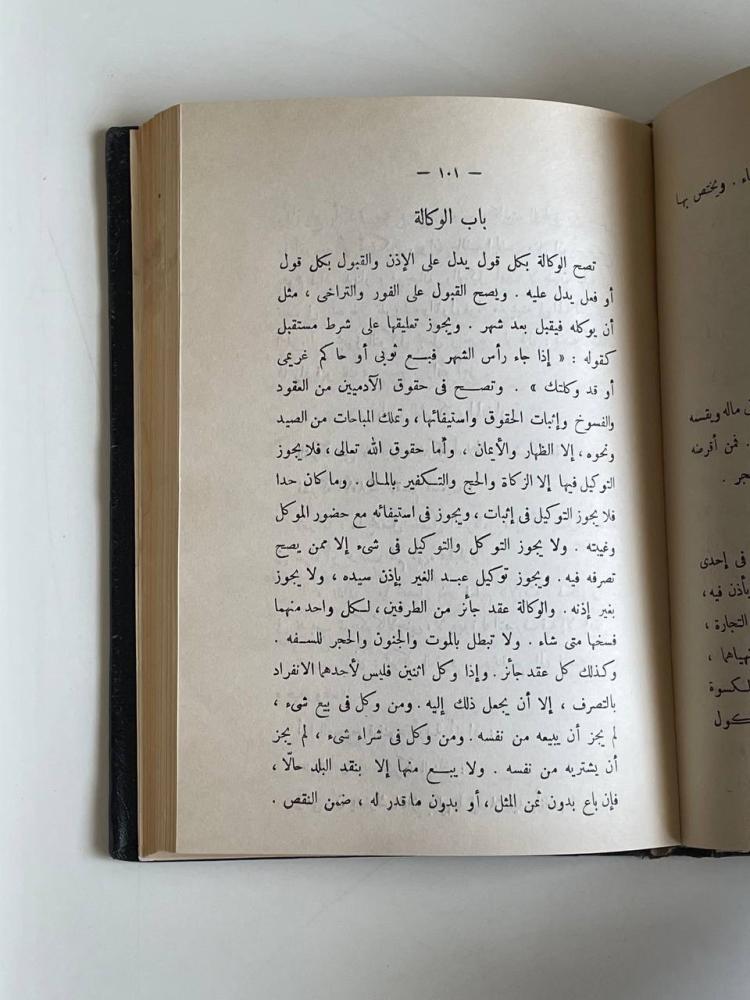 — ١٠١ —
باب الوكالة
تصح الوكالة بكل قول يدل على الإذن والقبول بكل قول
أو فعل يدل عليه . ويصح القبول على الفور والتراخى ، مثل
أن يوكله فيقبل بعد شهر . ويجوز تعليقها على شرط مستقبل
كقوله : « إذا جاء رأس الشهر فبع ثوبى أو حاكم غريمى
أو قد وكلتك » . وتصح فى حقوق الآدميين من العقود
والفسوخ وإثبات الحقوق واستيفائها، وتملك المباحات من الصيد
ونحوه، إلا الظهار والأيمان ، وأما حقوق الله تعالى ، فلا يجوز
التوكيل فيها إلا الزكاة والحج والتكفير بالمال . وما كان حدا
فلا يجوز التوكيل فى إثبات ، ويجوز فى استيفائه مع حضور الموكل
وغيبته . ولا يجوز التوكل والتوكيل فى شىء إلا ممن يصح
تصرفه فيه . ويجوز توكيل عبد الغير بإذن سيده ، ولا يجوز
بغير إذنه . والوكالة عقد جائز من الطرفين ، لكل واحد منهما
فسخها متى شاء . ولا تبطل بالموت والجنون والحجر للسفه .
وكذلك كل عقد جائز . وإذا وكل اثنين فليس لأحدهما الانفراد
بالتصرف ، إلا أن يجعل ذلك إليه . ومن وكل فى بيع شىء ،
لم يجز أن يبيعه من نفسه . ومن وكل فى شراء شىء ، لم يجز
أن يشتريه من نفسه . ولا يبع منها إلا بنقد البلد حالّا ،
فإن باع بدون ثمن المثل ، أو بدون ما قدر له ، ضمن النقص .
. ويختص بها
ماله ويقسه
. فمن أقرضه
فى إحدى
بأذن فيه ،
التجارة ،